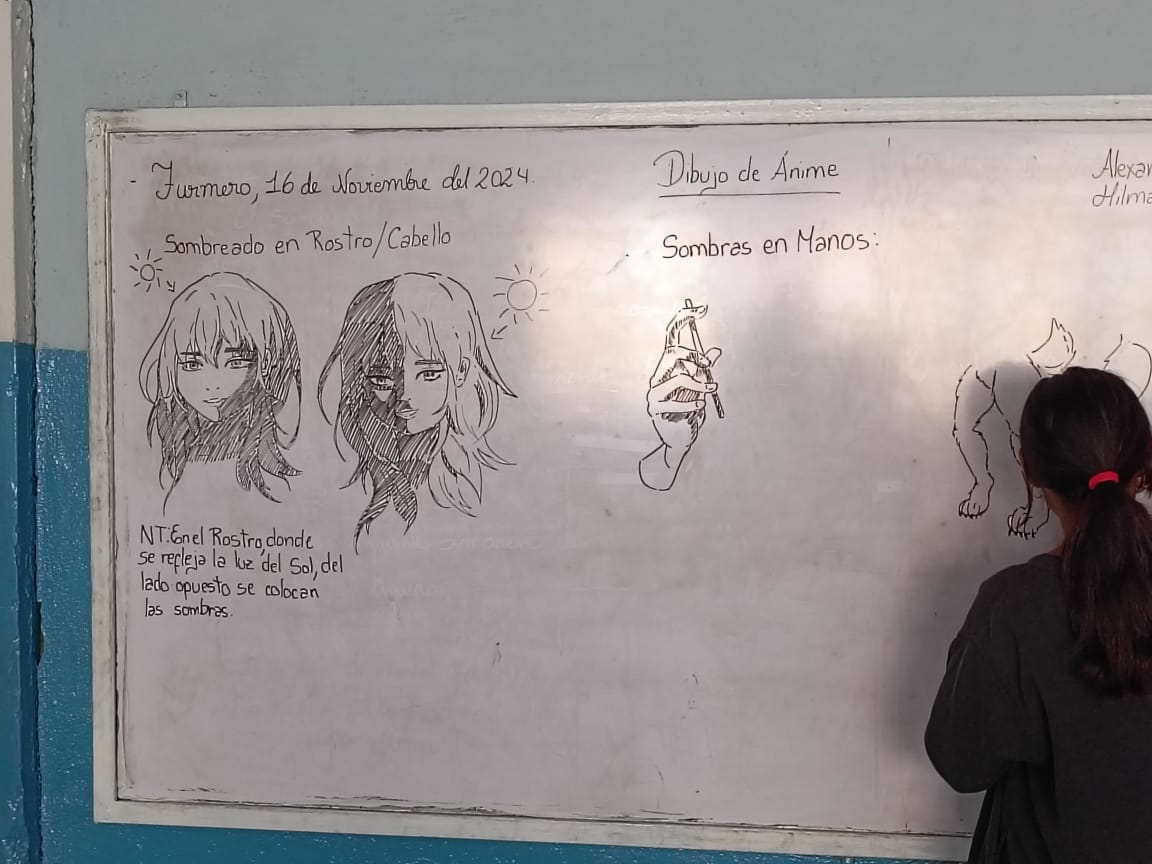 - Turmero, 16 de Noviembre del 2024.
Dibujo de Ánime
Sombreado en Rostro/Cabello
Sombras en Manos:
NT: En el Rostro, donde
se refleja la luz del Sol, del
lado opuesto se colocan
las sombras.